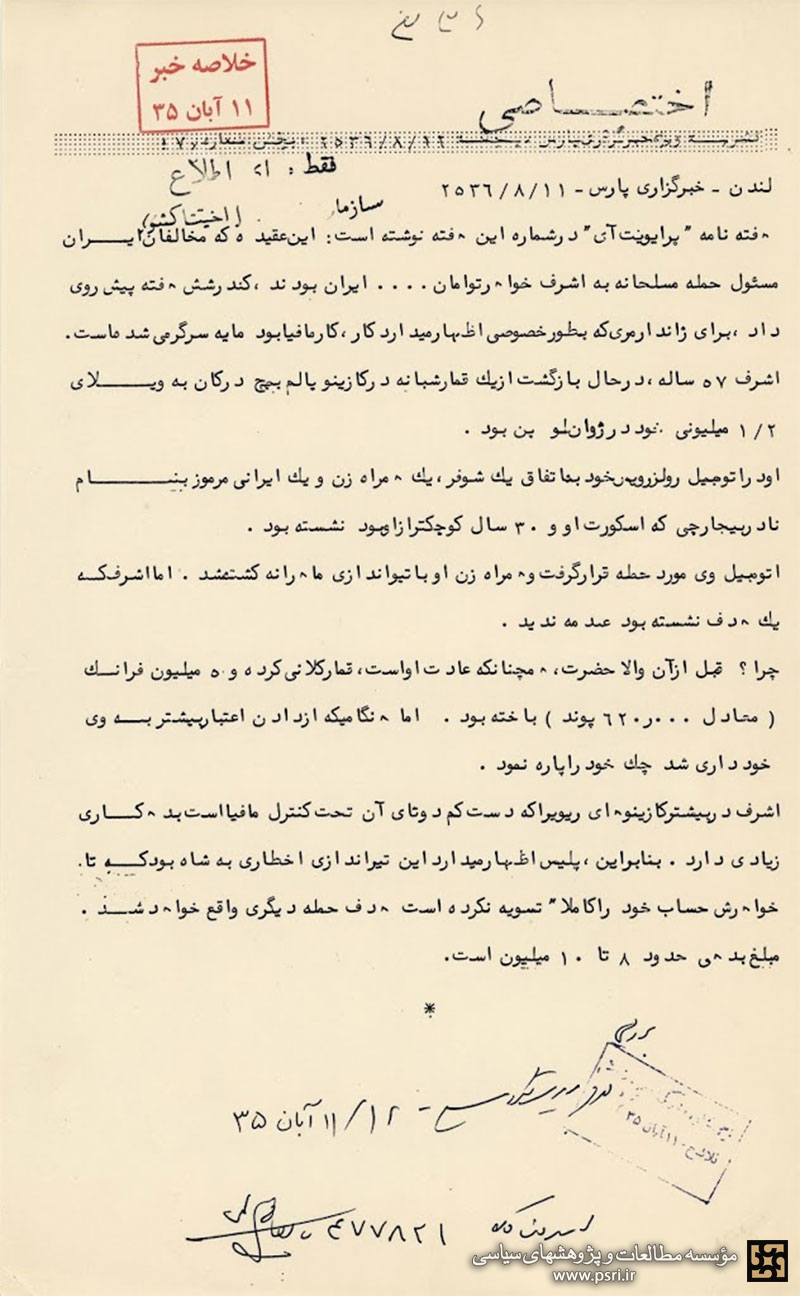 خلاصه خبر
۱۱ آبان ۳۵
اختصاصی
نشریه ویژه خبرگزاری پارس
فقط : اطلاع
سازمان
لندن - خبرگزاری پارس - ۲۵۳۶/۸/۱۱
هفته نامه "پرایویت آی" درشماره این هفته نوشته است: این عقیده که مخالفان ایران
مسئول حمله مسلحانه به اشرف خواهرتوامان .... ایران بودند ،که درشش هفته پیش روی
داد ،برای ژاندارمری که بطورخصوصی اظهارمیدارد کار ،کارمافیابود مایه سرگرمی شده است.
اشرف ۵۷ ساله ،درحال بازگشت ازیک قمارشبانه درکازینو پالم بیچ درکان به ویلای
۱/۲ میلیونی خود در ژوان لو پن بود .
او در اتومبیل رولزرویس خود به اتفاق یک شوفر ،یک همراه زن و یک ایرانی مرموز بنام
نادربیجارچی که اسکورت او و ۳۰ سال کوچکترازاوبود نشسته بود .
اتومبیل وی مورد حمله قرارگرفت و همراه زن او باتیراندازی ماهرانه کشته شد . امااشرف که
یک هدف نشسته بود صدمه ندید .
چرا ؟ قبل ازآن والا حضرت، همچنانکه عادت اواست، قمارکلانی کرده و ۵ میلیون فرانک
( معادل ۶۲۰ر۰۰۰ پوند ) باخته بود . اما هنگامیکه ازدادن اعتباربیشتر به وی
خودداری شد چک خود راپاره نمود .
اشرف دربیشترکازینوهای ریویراکه دست کم دوتای آن تحت کنترل مافیااست بدهکاری
زیادی دارد . بنابراین ،پلیس اظهارمیدارد این تیراندازی اخطاری به شاه بود که تا
خواهرش حساب خود راکاملا" تسویه نکرده است هدف حمله دیگری واقع خواهد شد .
مبلغ بدهی حدود ۸ تا ۱۰ میلیون است.
*
بررسی
۱۲/ ۱۱ آبان ۳۵
۱۱ آبان ۳۵
۴۷۷۸۲۱
مؤسسه مطالعات و پژوهشهای سیاسی
www.psri.ir